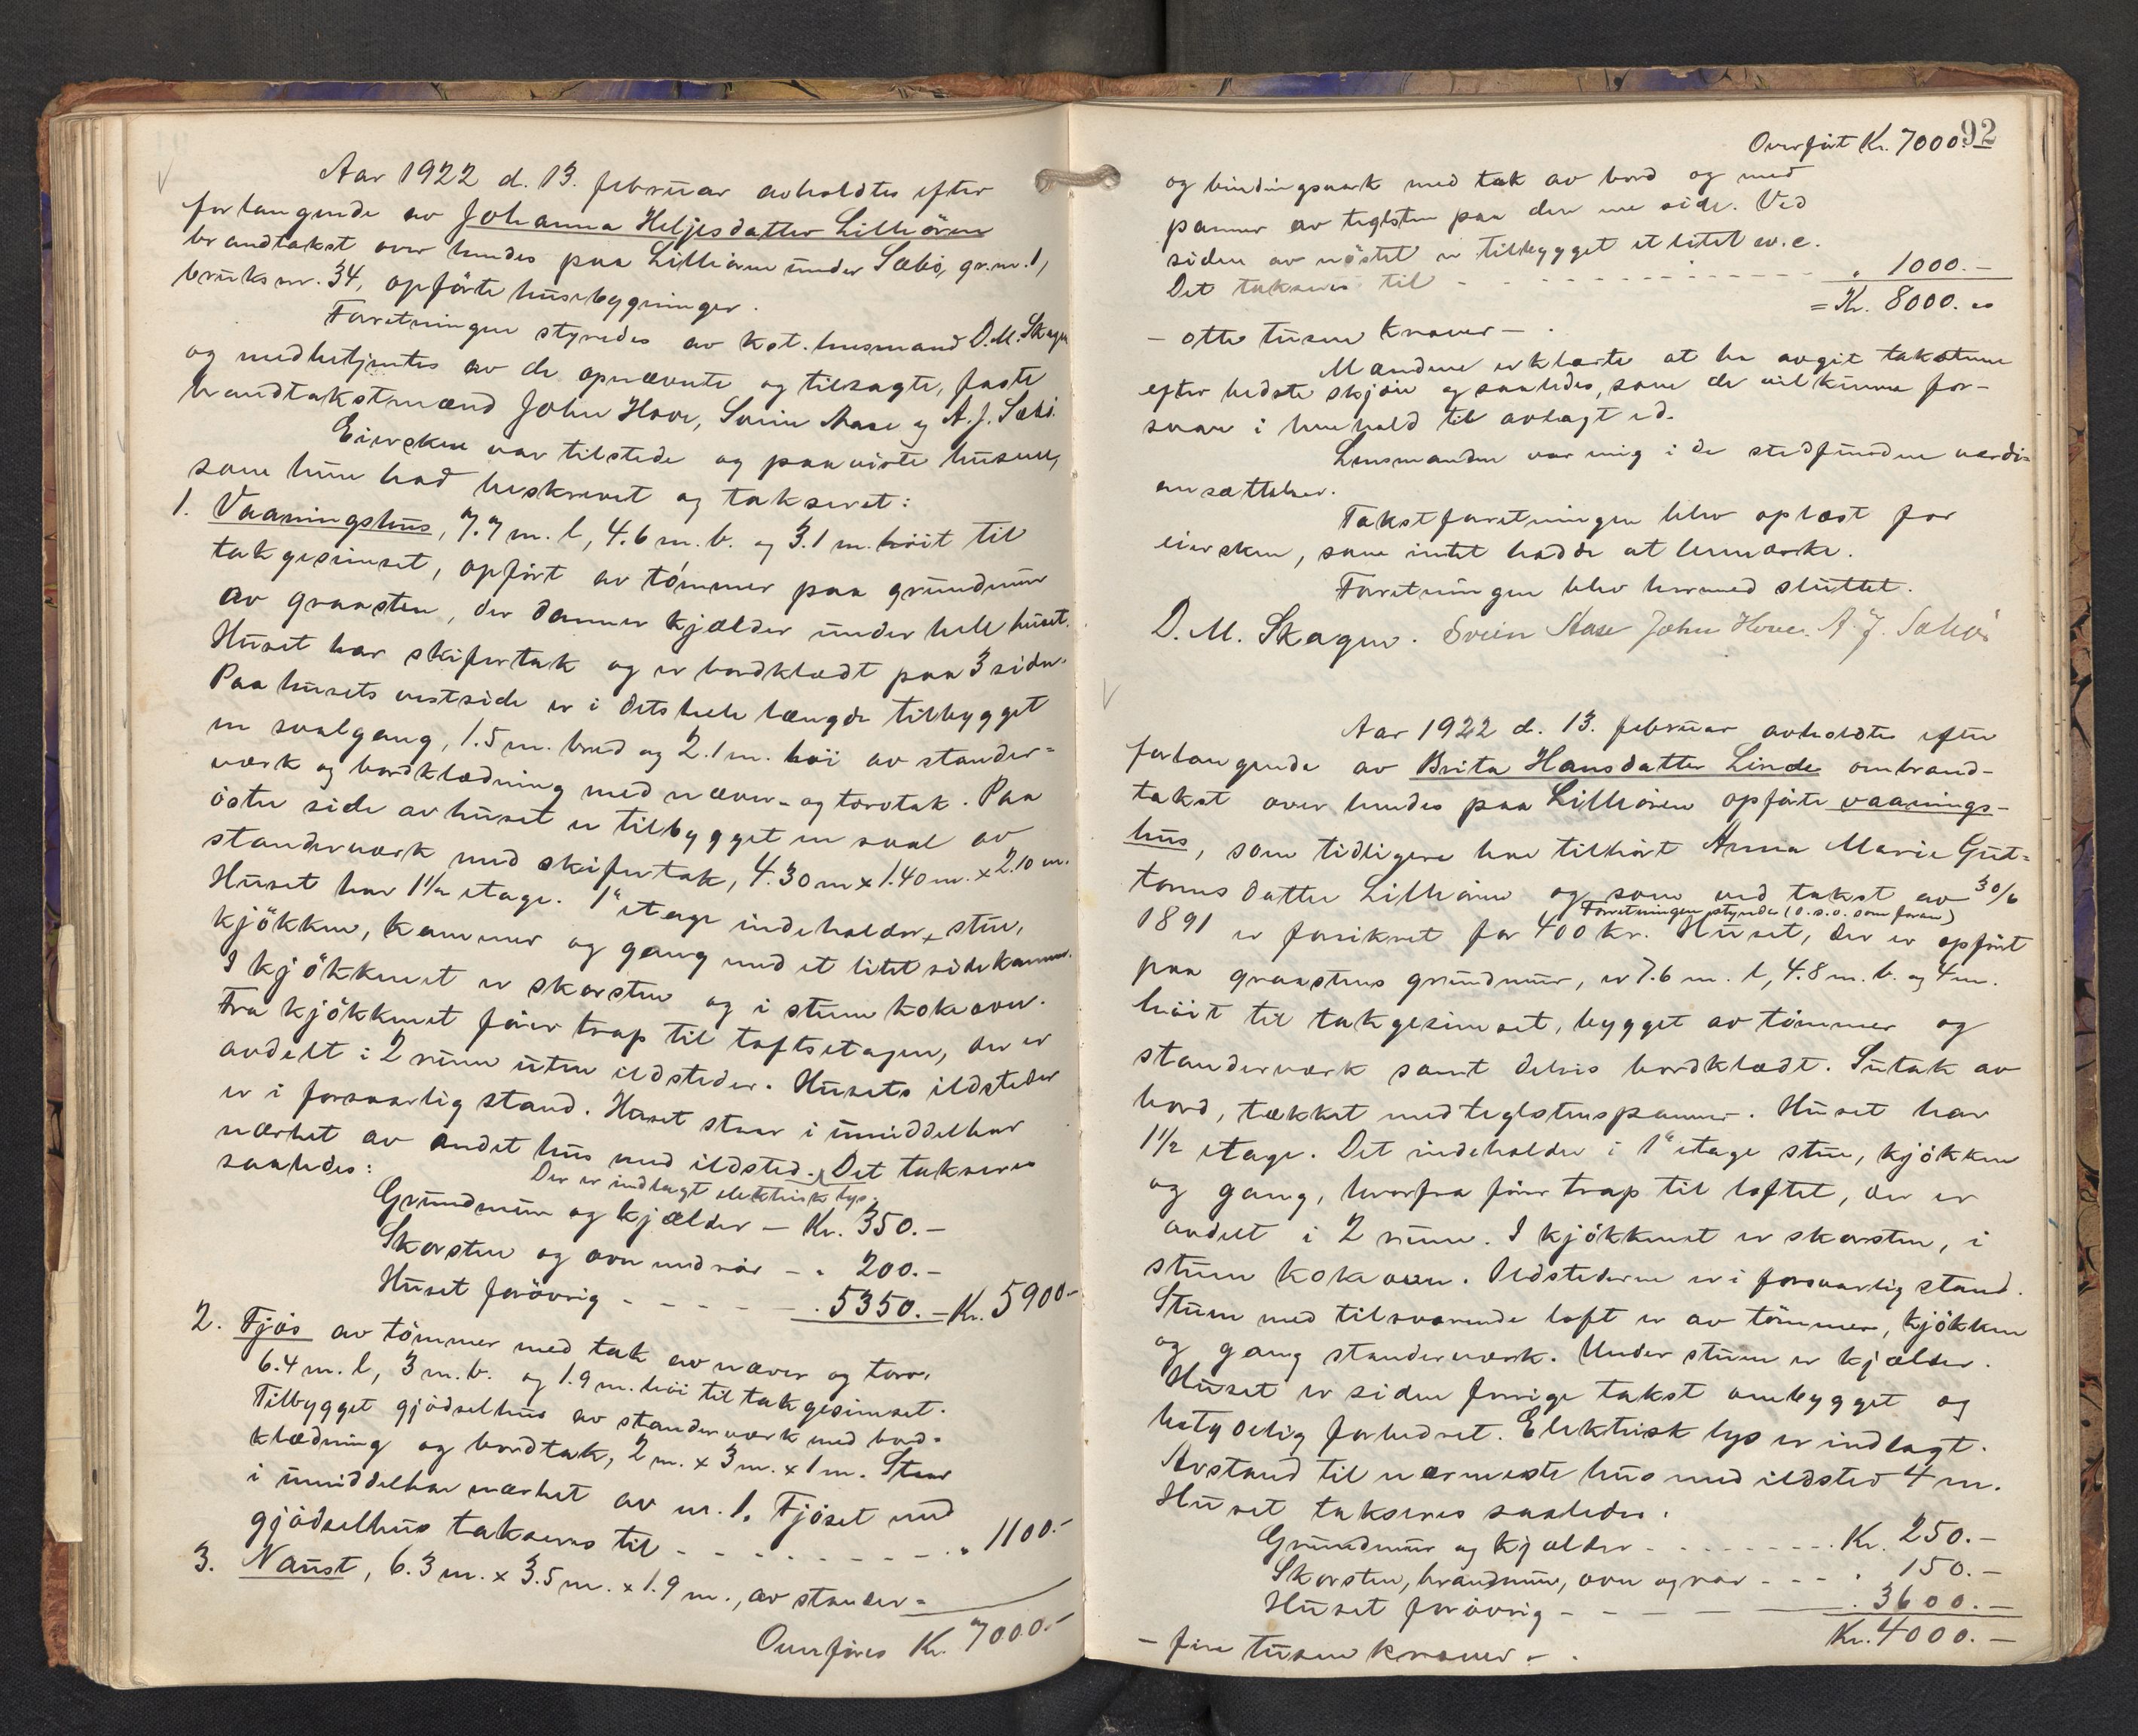 Aar 1922 d. 13. februar avholdtes efter
forlangende av Johanna Heljesdatter Lilleören
brandtakst over hendes paa Lilleören under Sæbö, gr.nr. 1,
bruksnr. 34, opförte husebygninger.
Forretningen styredes av kst. lensmand D. M. Skagen
og medbetjentes av de opnævnte og tilsagte, faste
brandtakstmænd John Hove, Svein Aase og A. J. Sæbö.
Eiersken var tilstede og paaviste husene,
som blev beskrevet og taksert:
1. Vaaningshus, 7.7 m. l, 4.6 m. b. og 3.1 m. höit til
takgesimset, opfört av tömmer paa grundmur
av graasten, der danner kjælder under hele huset.
Huset har skifertak og er bordklædt paa 3 sider.
Paa husets vestside er i dets hele længde tilbygget
en svalgang, 1.5 m. bred og 2.1 m. höi av stander-
værk og bordklædning med næver- og torvtak. Paa
östre side av huset er tilbygget en sval av
standerværk med skifertak, 4.30 m x 1.40 m. x 2.10 m.
Huset har 1 1/2 etage. 1ste etage indeholder stue,
kjökken, kammer og gang med et litet sidekammer.
I kjökkenet er skorsten og i stuen kokeovn.
Fra kjökkenet förer trap til loftsetagen, der er
avdelt i 2 rum uten ildsteder. Husets ildsteder
er i forsvarlig stand. Huset staar i umiddelbar
nærhet av andet hus med ildsted. Det takseres
saaledes:
Der er indlagt elektrisk lys.
Grundmur og kjælder — Kr. 350.-
Skorsten og ovn med rör - " 200.-
Huset forövrig - - - - - " 5350. - Kr. 5900.-
2. Fjös av tömmer med tak av næver og torv,
6.4 m. l, 3 m. b. og 1.9 m. höi til takgesimset.
Tilbygget gjödselhus av standerværk med bord-
klædning og bordtak, 2 m. x 3 m. x 1 m. Staar
i umiddelbar nærhet av nr. 1. Fjöset med
gjödselhus takseres til - - - - - - - - " 1100.-
3. Naust, 6.3 m. x 3.5 m. x 1.9 m., av stander-
Overföres Kr. 7000.-
92
Overfört Kr. 7000.-
og bindingsverk med tak av bord og med
panner av teglsten paa den ene side. Ved
siden av nöstet er tilbygget et litet w.c.
Det takseres til - - - - - - - - - - " 1000.-
= Kr. 8000.00
- otte tusen kroner - .
Mændene erklærte at ha avgit taksterne
efter bedste skjön og saaledes, som de vil kunne for-
svare i henhold til avlagt ed.
Lensmanden var enig i de stedfundne værdi-
ansættelser.
Takstforretningen blev oplæst for
eiersken, som intet hadde at bemerke.
Forretningen blev hermed sluttet.
D. M. Skagen. Svein Aase John Hove. A. J. Sæbö
Aar 1922 d. 13. februar avholdtes efter
forlangende av Brita Hansdatter Linde ombrand-
takst over hendes paa Lilleören opförte vaanings-
hus, som tidligere har tilhört Anna Marie Gut-
tormsdatter Lilleören og som ved takst av 30/6
Forretningen styredes (o.s.v. som foran)
1891 er forsikret for 400 kr. Huset, der er opfört
paa graastens grundmur, er 7.6 m. l, 4.8 m. b. og 4 m.
höit til takgesimset, bygget av tömmer og
standerværk samt delvis bordklædt. Sutak av
bord, tækket med teglstenspanner. Huset har
1 1/2 etage. Det indeholder i 1ste etage stue, kjökken
og gang, hvorfra förer trap til loftet, der er
avdelt i 2 rum. I kjökkenet er skorsten, i
stuen kokeovn. Ildstederne er i forsvarlig stand.
Stuen med tilsvarende loft er av tömmer, kjökken
og gang standerværk. Under stuen er kjælder.
Huset er siden forrige takst ombygget og
betydelig forbedret. Elektrisk lys er indlagt.
Avstand til nærmeste hus med ildsted 4 m.
Huset takseres saaledes:
Grundmur og kjælder - - - - - - - Kr. 250.-
Skorsten, brandmur, ovn og rör - - - " 150.-
Huset forövrig - - - - - " 3600.-
Kr. 4000.-
- fire tusen kroner - .